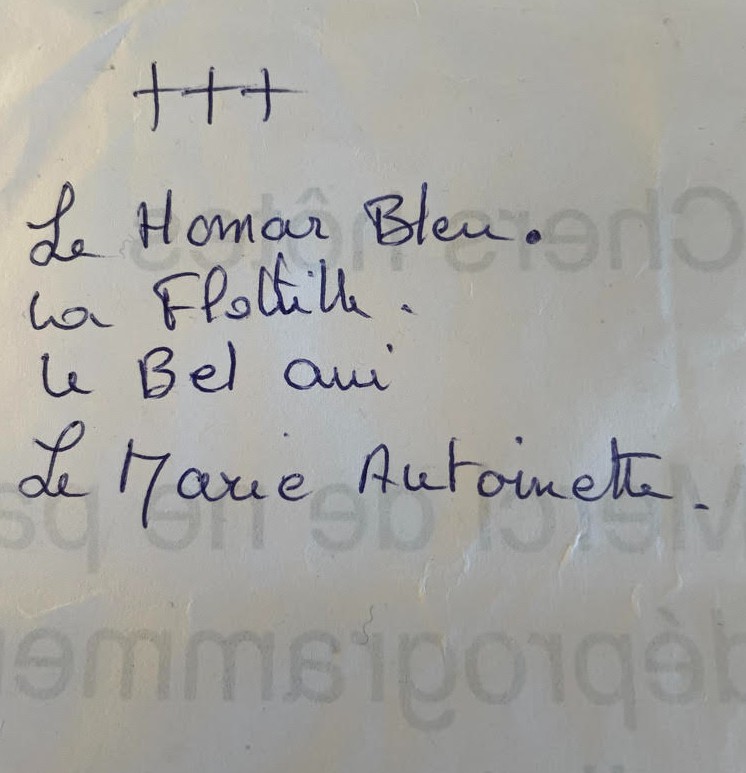 +++
Le Homar Bleu.
La Flottille.
Le Bel ami
Le Marie Antoinette.
Chers hôtes
Merci de ne pa
déprogrammer